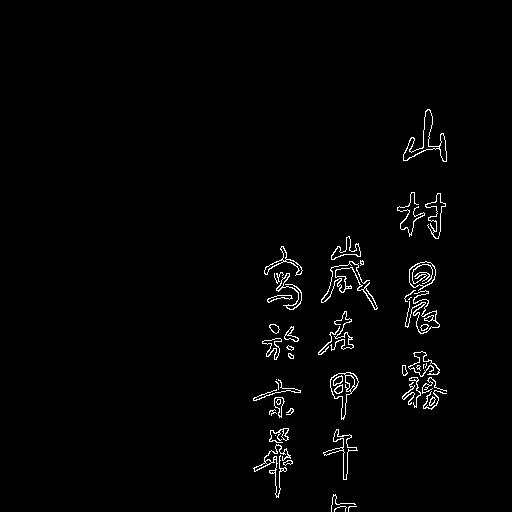 山村晨霧
歲在甲午
寫於京華